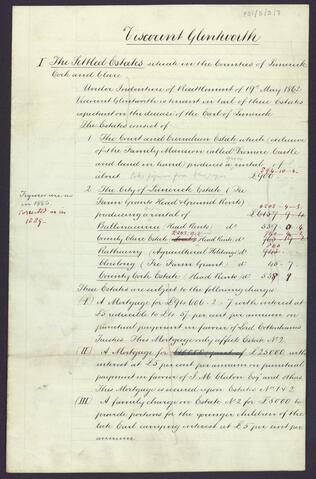 Viscount Glentworth
I The Settled Estates situate in the Counties of Limerick
Cork and Clare
Under Indenture of Resettlement of 19th May 1862
Viscount Glentworth is tenant in tail of these Estates
expectant on the decease of the Earl of Limerick
The Estates consist of
1. The Court and Demesne Estate which (exclusive
of the Family Mansion called Dromore Castle
and land in hand) produces a gross rental
about £900
2. The City of Limerick Estate (Fee
Farm Grants Head & Ground Rents)
producing a rental of
Figures are as
in 1880.
corrected as in
1889.
Ballinacurra (Head Rents) do 539
County Clare Estate Head Rents do
Rathurry (Agricultural Holdings) do
(Fee Farm Grant) do
County Cork Estate (Head Rents)
These Estates are subject to the following charges
(I) A Mortgage for £40,606-2-7 with interest at
£5 reducible to per cent per annum on
punctual payment in favor of Lord Cottenham's
Trustees. This Mortgage only affects Estate No 2.
(II) A Mortgage for £25000 with
interest at £5 per cent per annum on punctual
payment in favor of J. M. Clabon Esq and others
This Mortgage is secured upon Estates No 1 & 2
(III) A family charge on Estate No 2 for £5000 to
provide portions for the younger children of the
late Earl carrying interest at £5 per cent per
annum